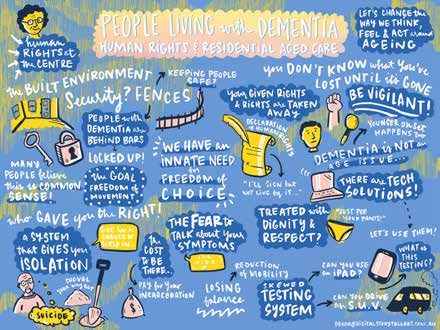 PEOPLE LIVING with DEMENTIA
HUMAN RIGHTS & RESIDENTIAL AGED CARE
LET'S CHANGE the
WAY WE THINK,
FEEL & ACT around
AGEING
human
RIGHTS at
the CENTRE
the BUILT ENVIRONMENT
Security? FENCES
KEEPING PEOPLE
SAFE?
PEOPLE with
DEMENTIA are
BEHIND BARS
LOCKED UP!
the GOAL
FREEDOM of
MOVEMENT
MANY
PEOPLE believe
this is COMMON
SENSE!
you GIVEN RIGHTS
& RIGHTS are TAKEN
AWAY
DECLARATION
of HUMAN RIGHTS
"I'LL SIGN but
not LIVE by IT..."
WE HAVE an
INNATE NEED
for FREEDOM of
CHOICE
you DON'T KNOW what YOU'VE
LOST UNTIL it's GONE
BE VIGILANT!
YOUNGER ONSET
HAPPENS too
DEMENTIA IS NOT an
AGE ISSUE...
THERE are TECH
SOLUTIONS!
LET'S USE THEM!
who GAVE YOU the RIGHT!
A SYSTEM
that GIVES you
ISOLATION
SHOVEL
your WAY OUT
SUICIDE
the
COST
to BE
THERE...
PAY for YOUR
INCARCERATION
the FEAR to
TALK about YOUR
SYMPTOMS
REDUCTION
of MOBILITY
LOSING
balance
TREATED with
DIGNITY &
RESPECT?
SKEWED
TESTING
SYSTEM
CAN YOU USE
an IPAD?
CAN YOU DRIVE
an S.U.V.
WHAT is
this TESTING?